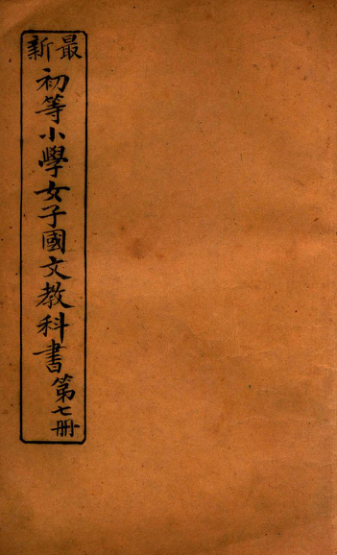 最新
初等小學女子國文教科書第七册